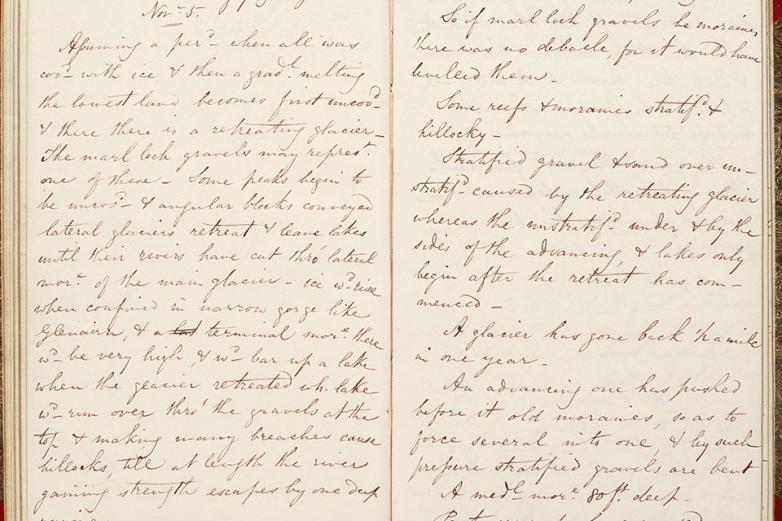 Novr 5.
Assuming a perd- when all was
covd- with ice & then a gradl. melting
the lowest land becomes first uncovd-
& there there is a retreating glacier-
The marl loch gravels may represt.
one of these - Some peaks begin to
be uncovd- & angular blocks conveyed
lateral glaciers retreat & leave lakes
until their rivers have cut thro' lateral
morn. of the main glacier - ice wd- rise
when confined in narrow gorge like
& a terminal more. there
wd- be very high, & wd- bar up a lake
when the glacier retreated wh. lake
wd- run over thro' the gravels at the
top & making many breaches cause
hillocks, till at length the river
gaining strength escapes by one deep
So if marl loch gravels be moraines,
there was no debacle, for it would have
levelled them-
Some reefs & moraines stratifd. &
hillocky-
Stratified gravel & sand over un-
stratifd- caused by the retreating glacier
whereas the unstratifd. under & by the
sides of the advancing, & lakes only
begin after the retreat has com-
menced-
A glacier has gone back ½ a mile
in one year-
An advancing one has pushed
before it old moraines, so as to
force several into one, & by such
pressure stratified gravels are bent
A medl- more. 80 ft. deep-